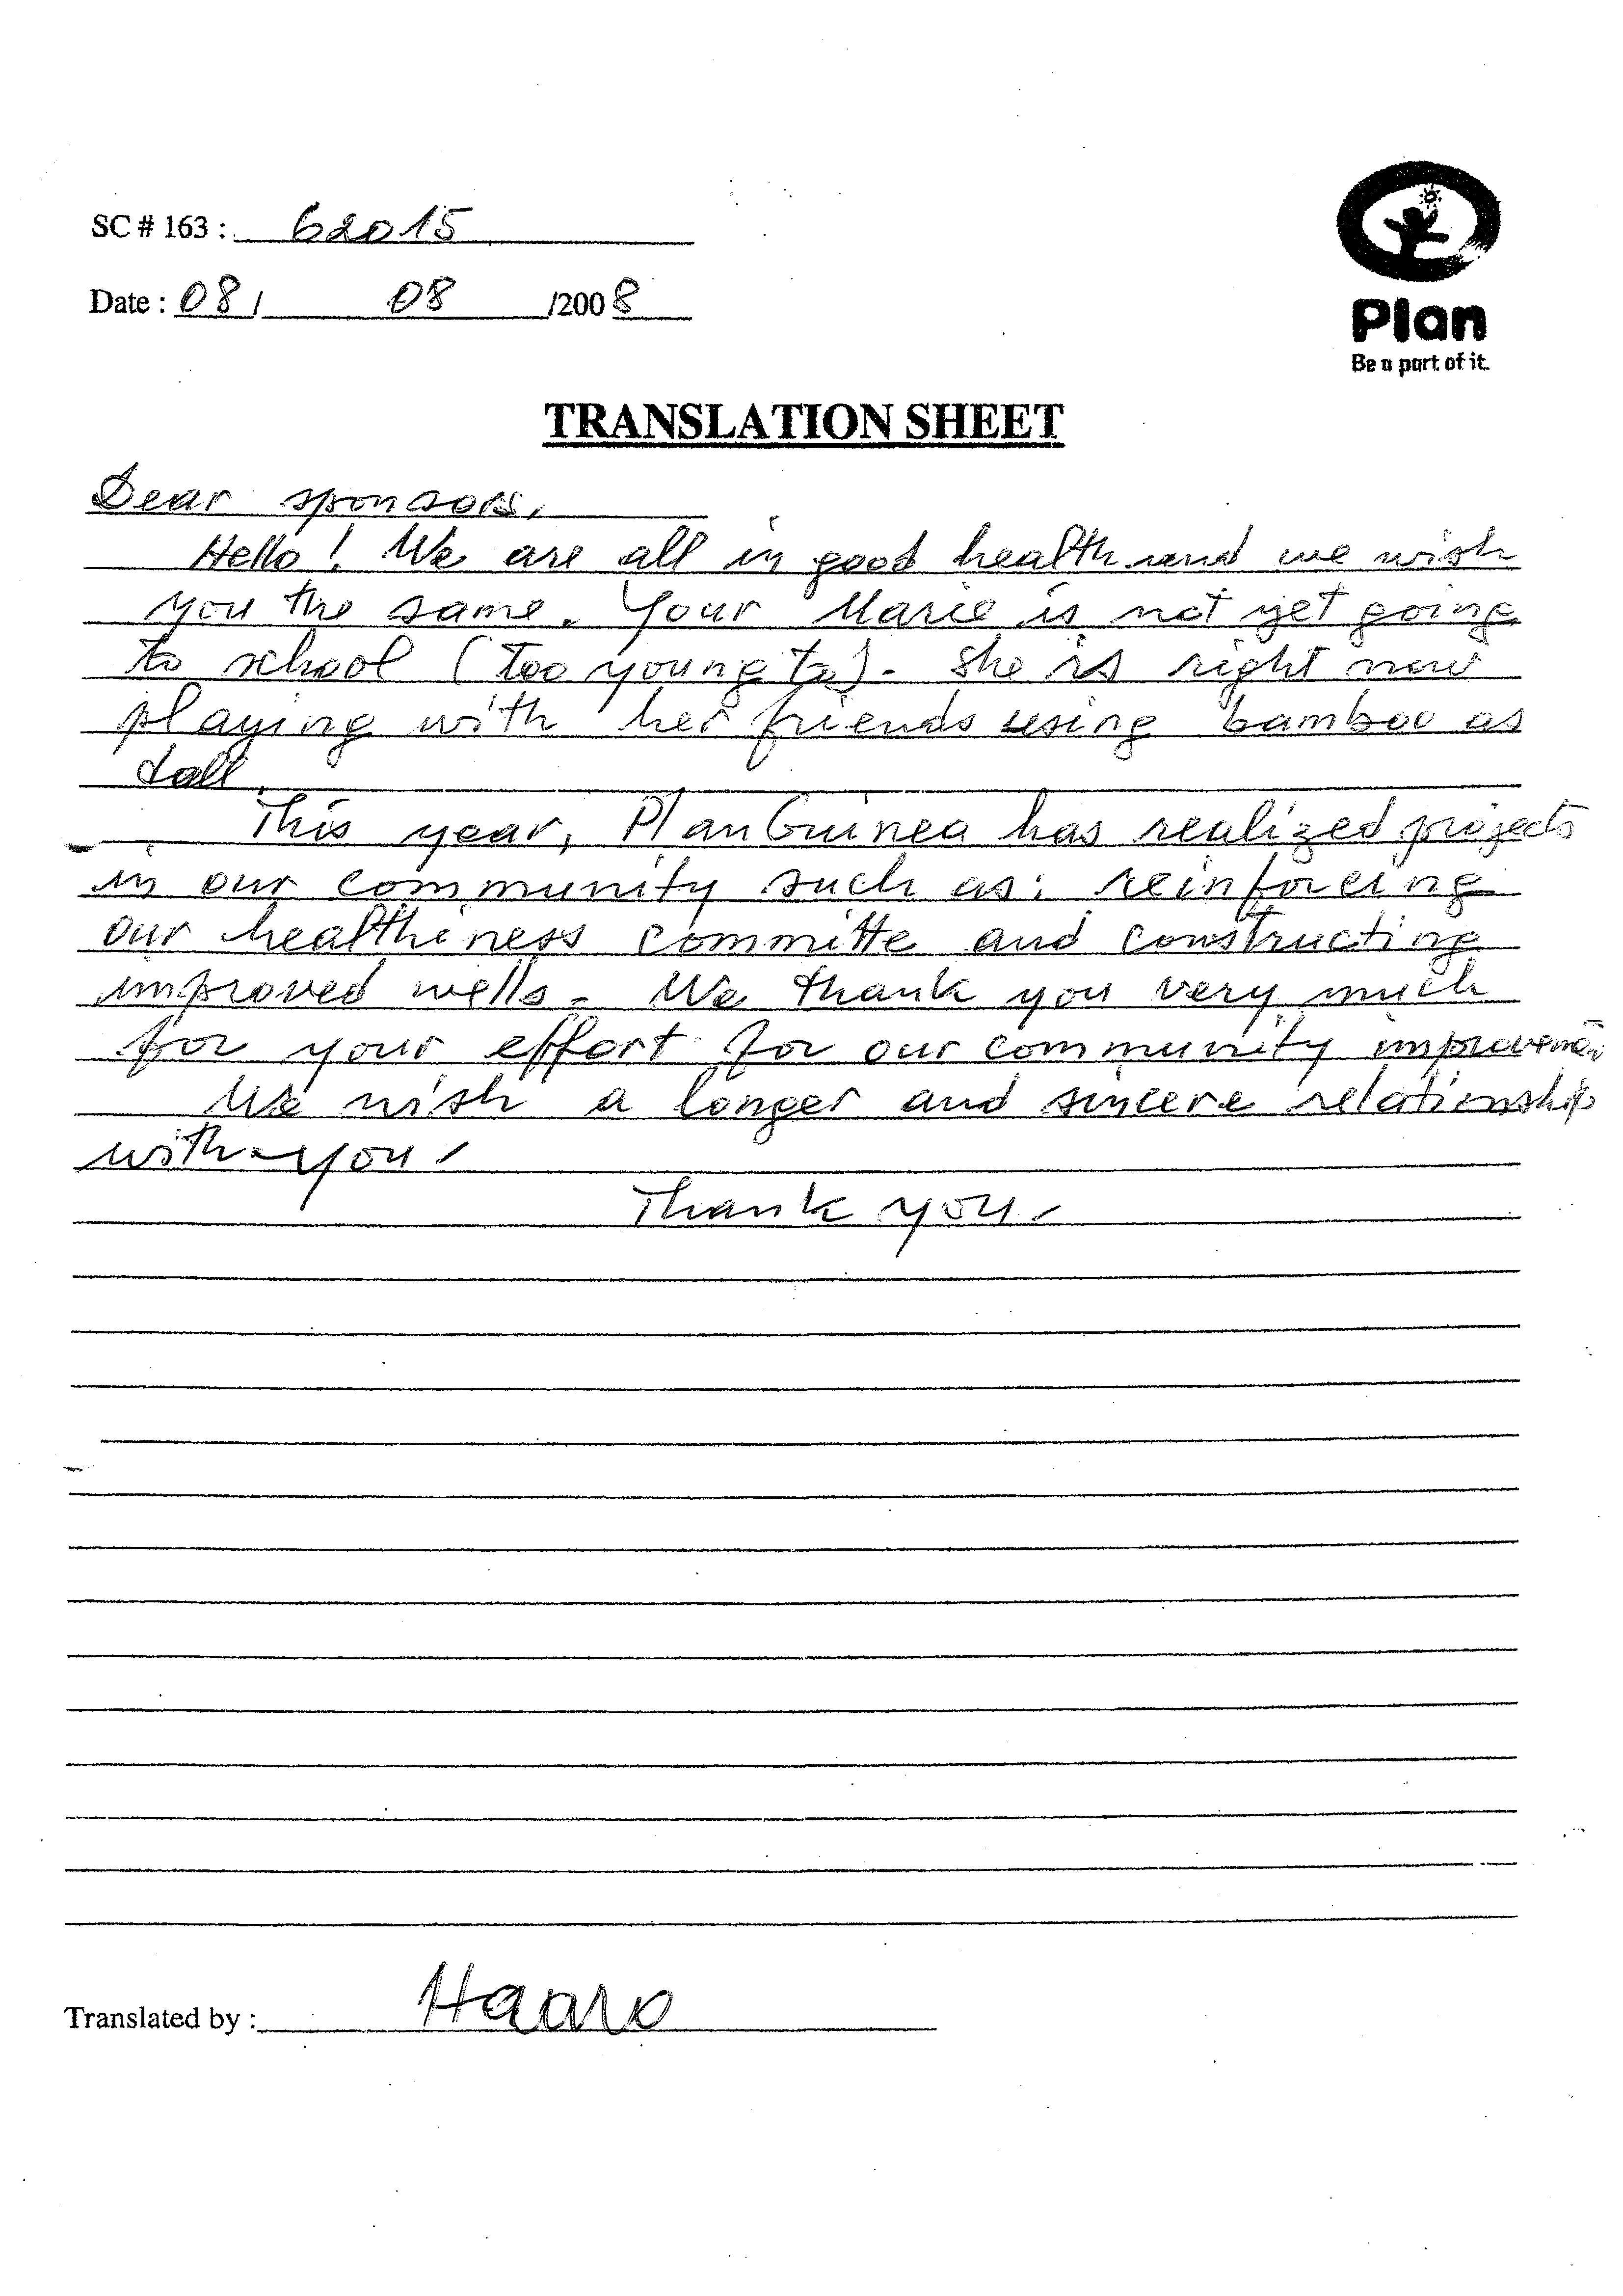 SC # 163 : 62015
Date : 08 / 08 /2008
Plan
Be a part of it.
TRANSLATION SHEET
Dear sponsors,
Hello ! We are all in good health and we wish
you the same. Your Marie is not yet going
to school (too young to). She is right now
playing with her friends using bamboo as
doll.
This year, Plan Guinea has realized projects
in our community such as: reinforcing
our healthiness committe and constructing
improved wells. We thank you very much
for your effort for our community
We wish a longer and sincere relationship
with you.
Thank you.
Translated by :